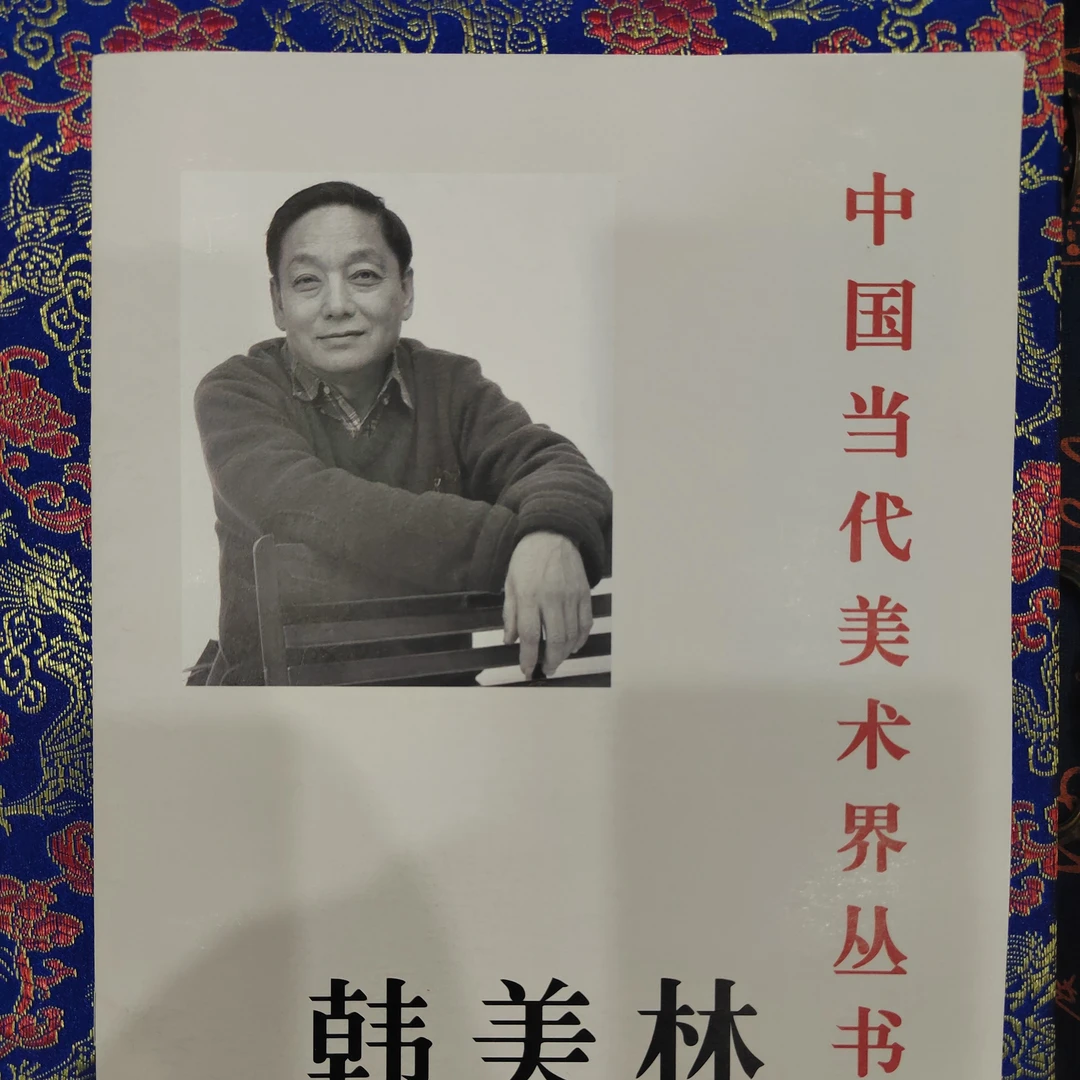 中国当代美术界丛书
韩美林